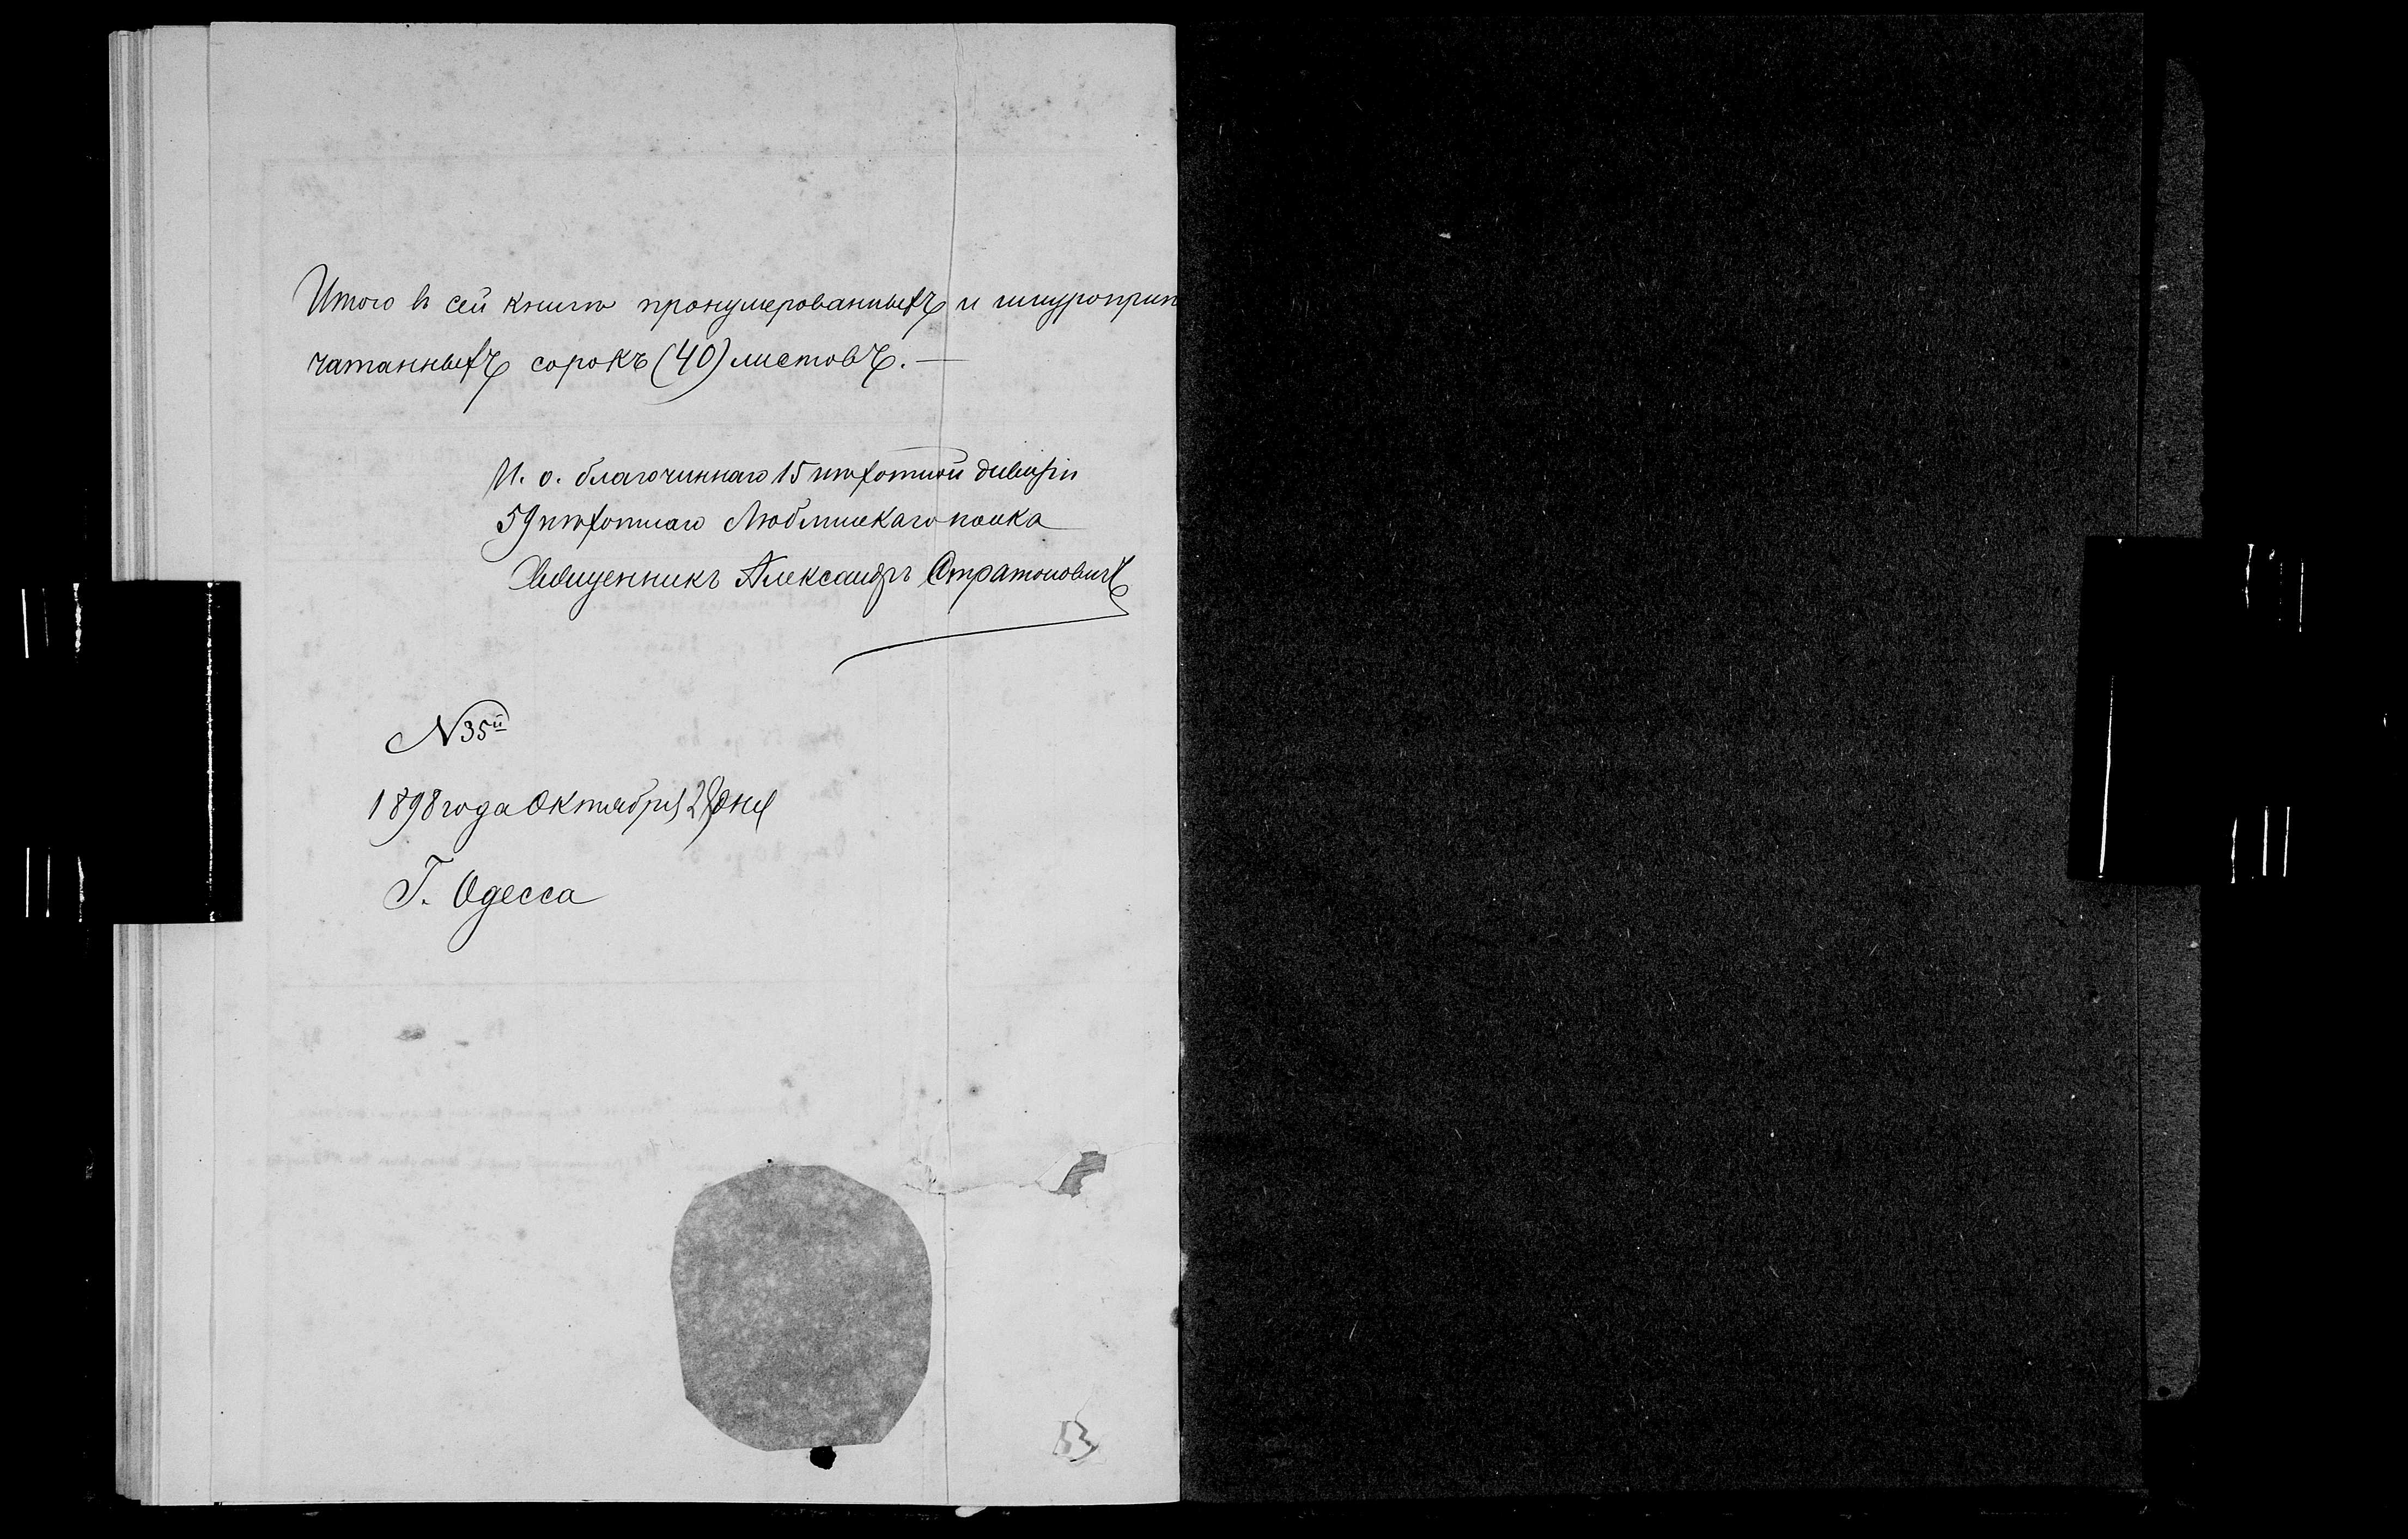 Итого въ сей книгѣ пронумерованныхъ и шнуроприп
чатанныхъ сорокъ (40) листовъ. —
И. о. благочиннаго 15 пѣхотной дивизіи
59 пѣхотнаго Люблинскаго полка
Священникъ Александръ Стратоновичъ
N 35й
1898 года Октября дня
Г. Одесса